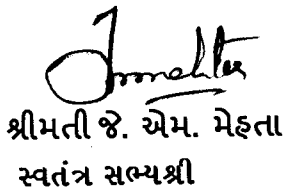 શ્રીમતી જે. એમ. મેહતા
સ્વતંત્ર સભ્યશ્રી